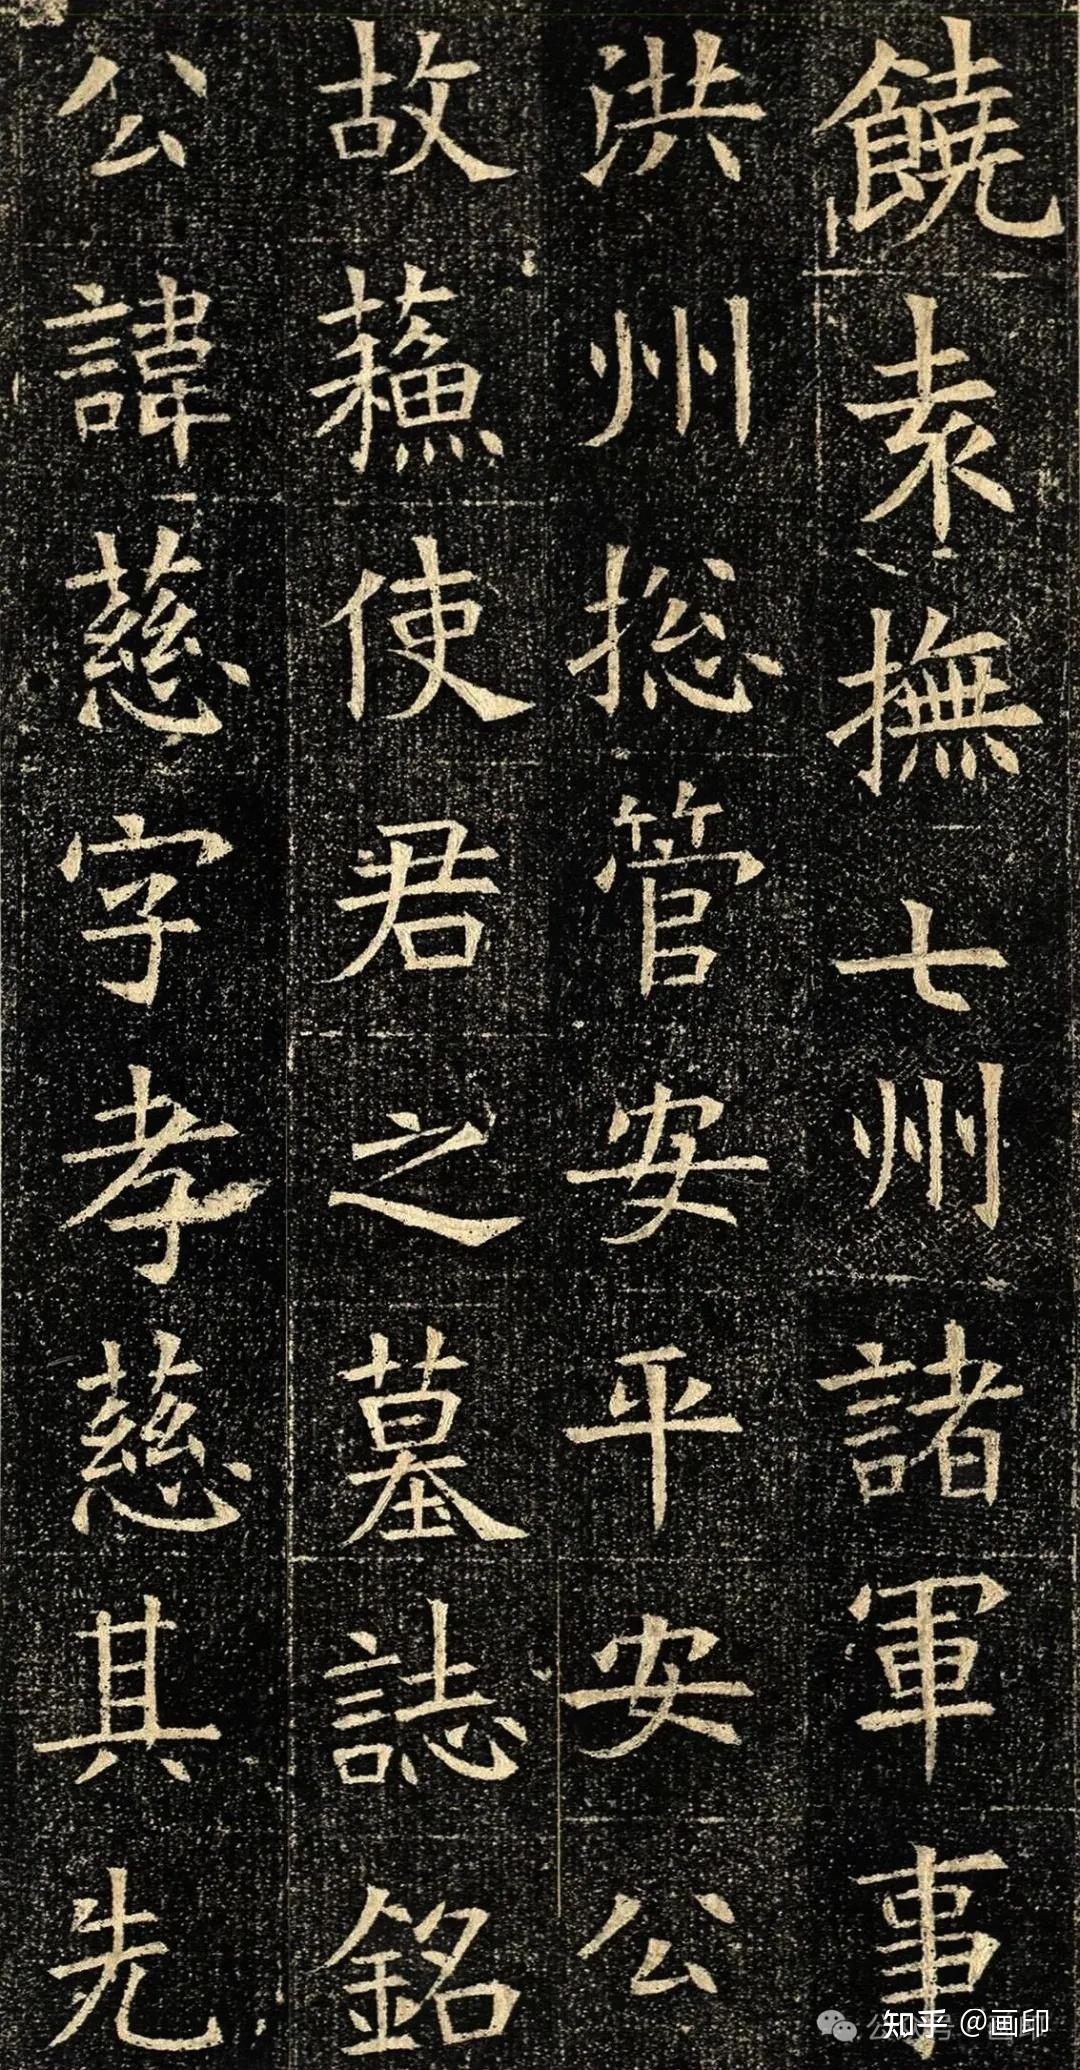 饒袁撫七州諸軍事
洪州捴管安平安公
故蘓使君之墓誌銘
公諱慈字孝慈其先
知乎 @画印